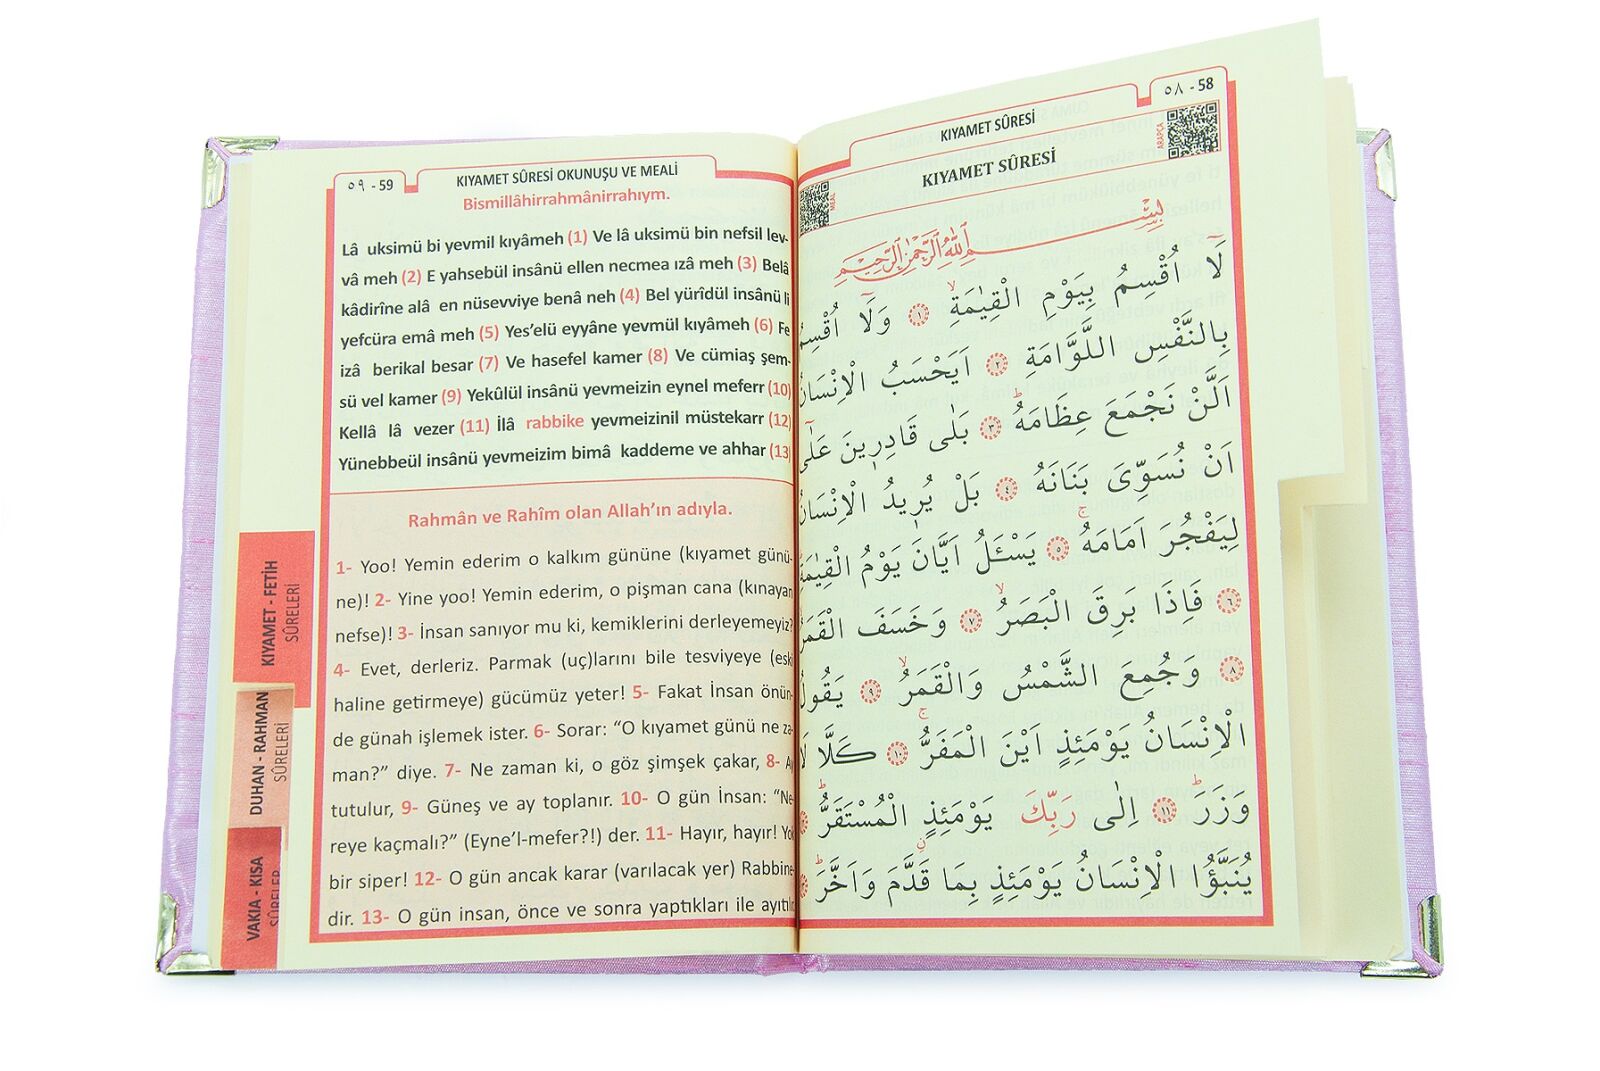 ٥٨ - 58
KIYAMET SÛRESİ
ARAPÇA
KIYAMET SÛRESİ
MEAL
بِسْمِ اللّٰهِ الرَّحْمٰنِ الرَّحِيمِ
لَٓا اُقْسِمُ بِيَوْمِ الْقِيٰمَةِۙ ﴿١﴾ وَلَٓا اُقْسِمُ
بِالنَّفْسِ اللَّوَّامَةِ ﴿٢﴾ اَيَحْسَبُ الْاِنْسَانُ
اَلَّنْ نَجْمَعَ عِظَامَهُۜ ﴿٣﴾ بَلٰى قَادِرٖينَ عَلٰٓى
اَنْ نُسَوِّىَ بَنَانَهُ ﴿٤﴾ بَلْ يُرٖيدُ الْاِنْسَانُ
لِيَفْجُرَ اَمَامَهُۚ ﴿٥﴾ يَسْـَٔلُ اَيَّانَ يَوْمُ الْقِيٰمَةِ
﴿٦﴾ فَاِذَا بَرِقَ الْبَصَرُۙ ﴿٧﴾ وَخَسَفَ الْقَمَرُ
﴿٨﴾ وَجُمِعَ الشَّمْسُ وَالْقَمَرُۙ ﴿٩﴾ يَقُولُ
الْاِنْسَانُ يَوْمَئِذٍ اَيْنَ الْمَفَرُّۚ ﴿١٠﴾ كَلَّا لَا
وَزَرَۜ ﴿١١﴾ اِلٰى رَبِّكَ يَوْمَئِذٍ الْمُسْتَقَرُّۜ
يُنَبَّؤُا الْاِنْسَانُ يَوْمَئِذٍ بِمَا قَدَّمَ وَاَخَّرَۜ
٥٩ - 59
KIYAMET SÛRESİ OKUNUŞU VE MEALİ
Bismillâhirrahmânirrahıym.
Lâ uksimü bi yevmil kıyâmeh (1) Ve lâ uksimü bin nefsil lev-
vâ meh (2) E yahsebül insânü ellen necmea ızâ meh (3) Belâ
kâdirîne alâ en nüsevviye benâ neh (4) Bel yürîdül insânü li
yefcüra emâ meh (5) Yes'elü eyyâne yevmül kıyâmeh (6) Fe
izâ berikal besar (7) Ve hasefel kamer (8) Ve cümiaş şem-
sü vel kamer (9) Yekûlül insânü yevmeizin eynel meferr (10)
Kellâ lâ vezer (11) İlâ rabbike yevmeizinil müstekarr (12)
Yünebbeül insânü yevmeizim bimâ kaddeme ve ahhar (13)
Rahmân ve Rahîm olan Allah'ın adıyla.
1- Yoo! Yemin ederim o kalkım gününe (kıyamet günü-
ne)! 2- Yine yoo! Yemin ederim, o pişman cana (kınayan
nefse)! 3- İnsan sanıyor mu ki, kemiklerini derleyemeyiz?
4- Evet, derleriz. Parmak (uç)larını bile tesviyeye (eski
haline getirmeye) gücümüz yeter! 5- Fakat İnsan önün-
de günah işlemek ister. 6- Sorar: “O kıyamet günü ne za-
man?” diye. 7- Ne zaman ki, o göz şimşek çakar, 8- Ay
tutulur, 9- Güneş ve ay toplanır. 10- O gün İnsan: “Ne-
reye kaçmalı?” (Eyne'l-mefer?!) der. 11- Hayır, hayır! Yok
bir siper! 12- O gün ancak karar (varılacak yer) Rabbine-
dir. 13- O gün insan, önce ve sonra yaptıkları ile ayıtılır
KIYAMET - FETİH
SÛRELERİ
DUHAN - RAHMAN
SÛRELERİ
VAKIA - KISA
SÛRELER